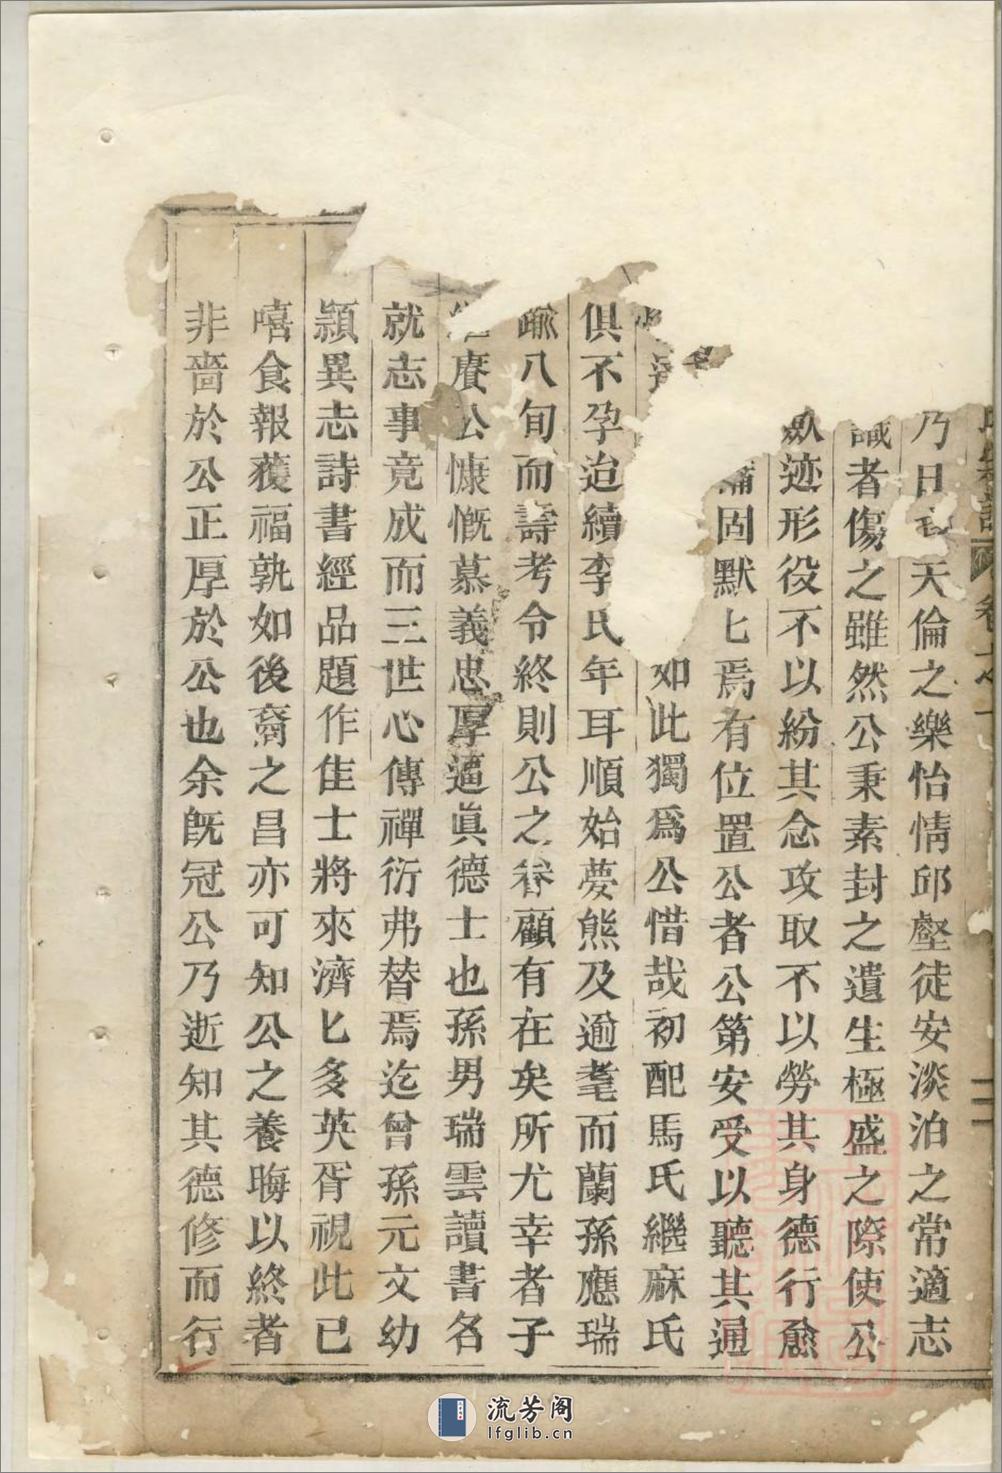 乃日天倫之樂怡情邱壑徒安淡泊之常適志
識者傷之雖然公秉素封之遺生極盛之際使公
斂迹形役不以紛其念攻取不以勞其身德行愈
固默匕焉有位置公者公第安受以聽其通
如此獨爲公惜哉初配馬氏繼麻氏
俱不孕迨續李氏年耳順始夢熊及逾耄而蘭孫應瑞
踰八旬而壽考令終則公之眷顧有在矣所尤幸者子
賡公慷慨慕義忠厚逼眞德士也孫男瑞雲讀書名
就志事竟成而三世心傳禪衍弗替焉迄曾孫元文幼
頴異志詩書經品題作佳士將來濟匕多英胥視此已
嘻食報獲福孰如後裔之昌亦可知公之養晦以終者
非嗇於公正厚於公也余旣冠公乃逝知其德修而行
流芳阁
lfglib.cn